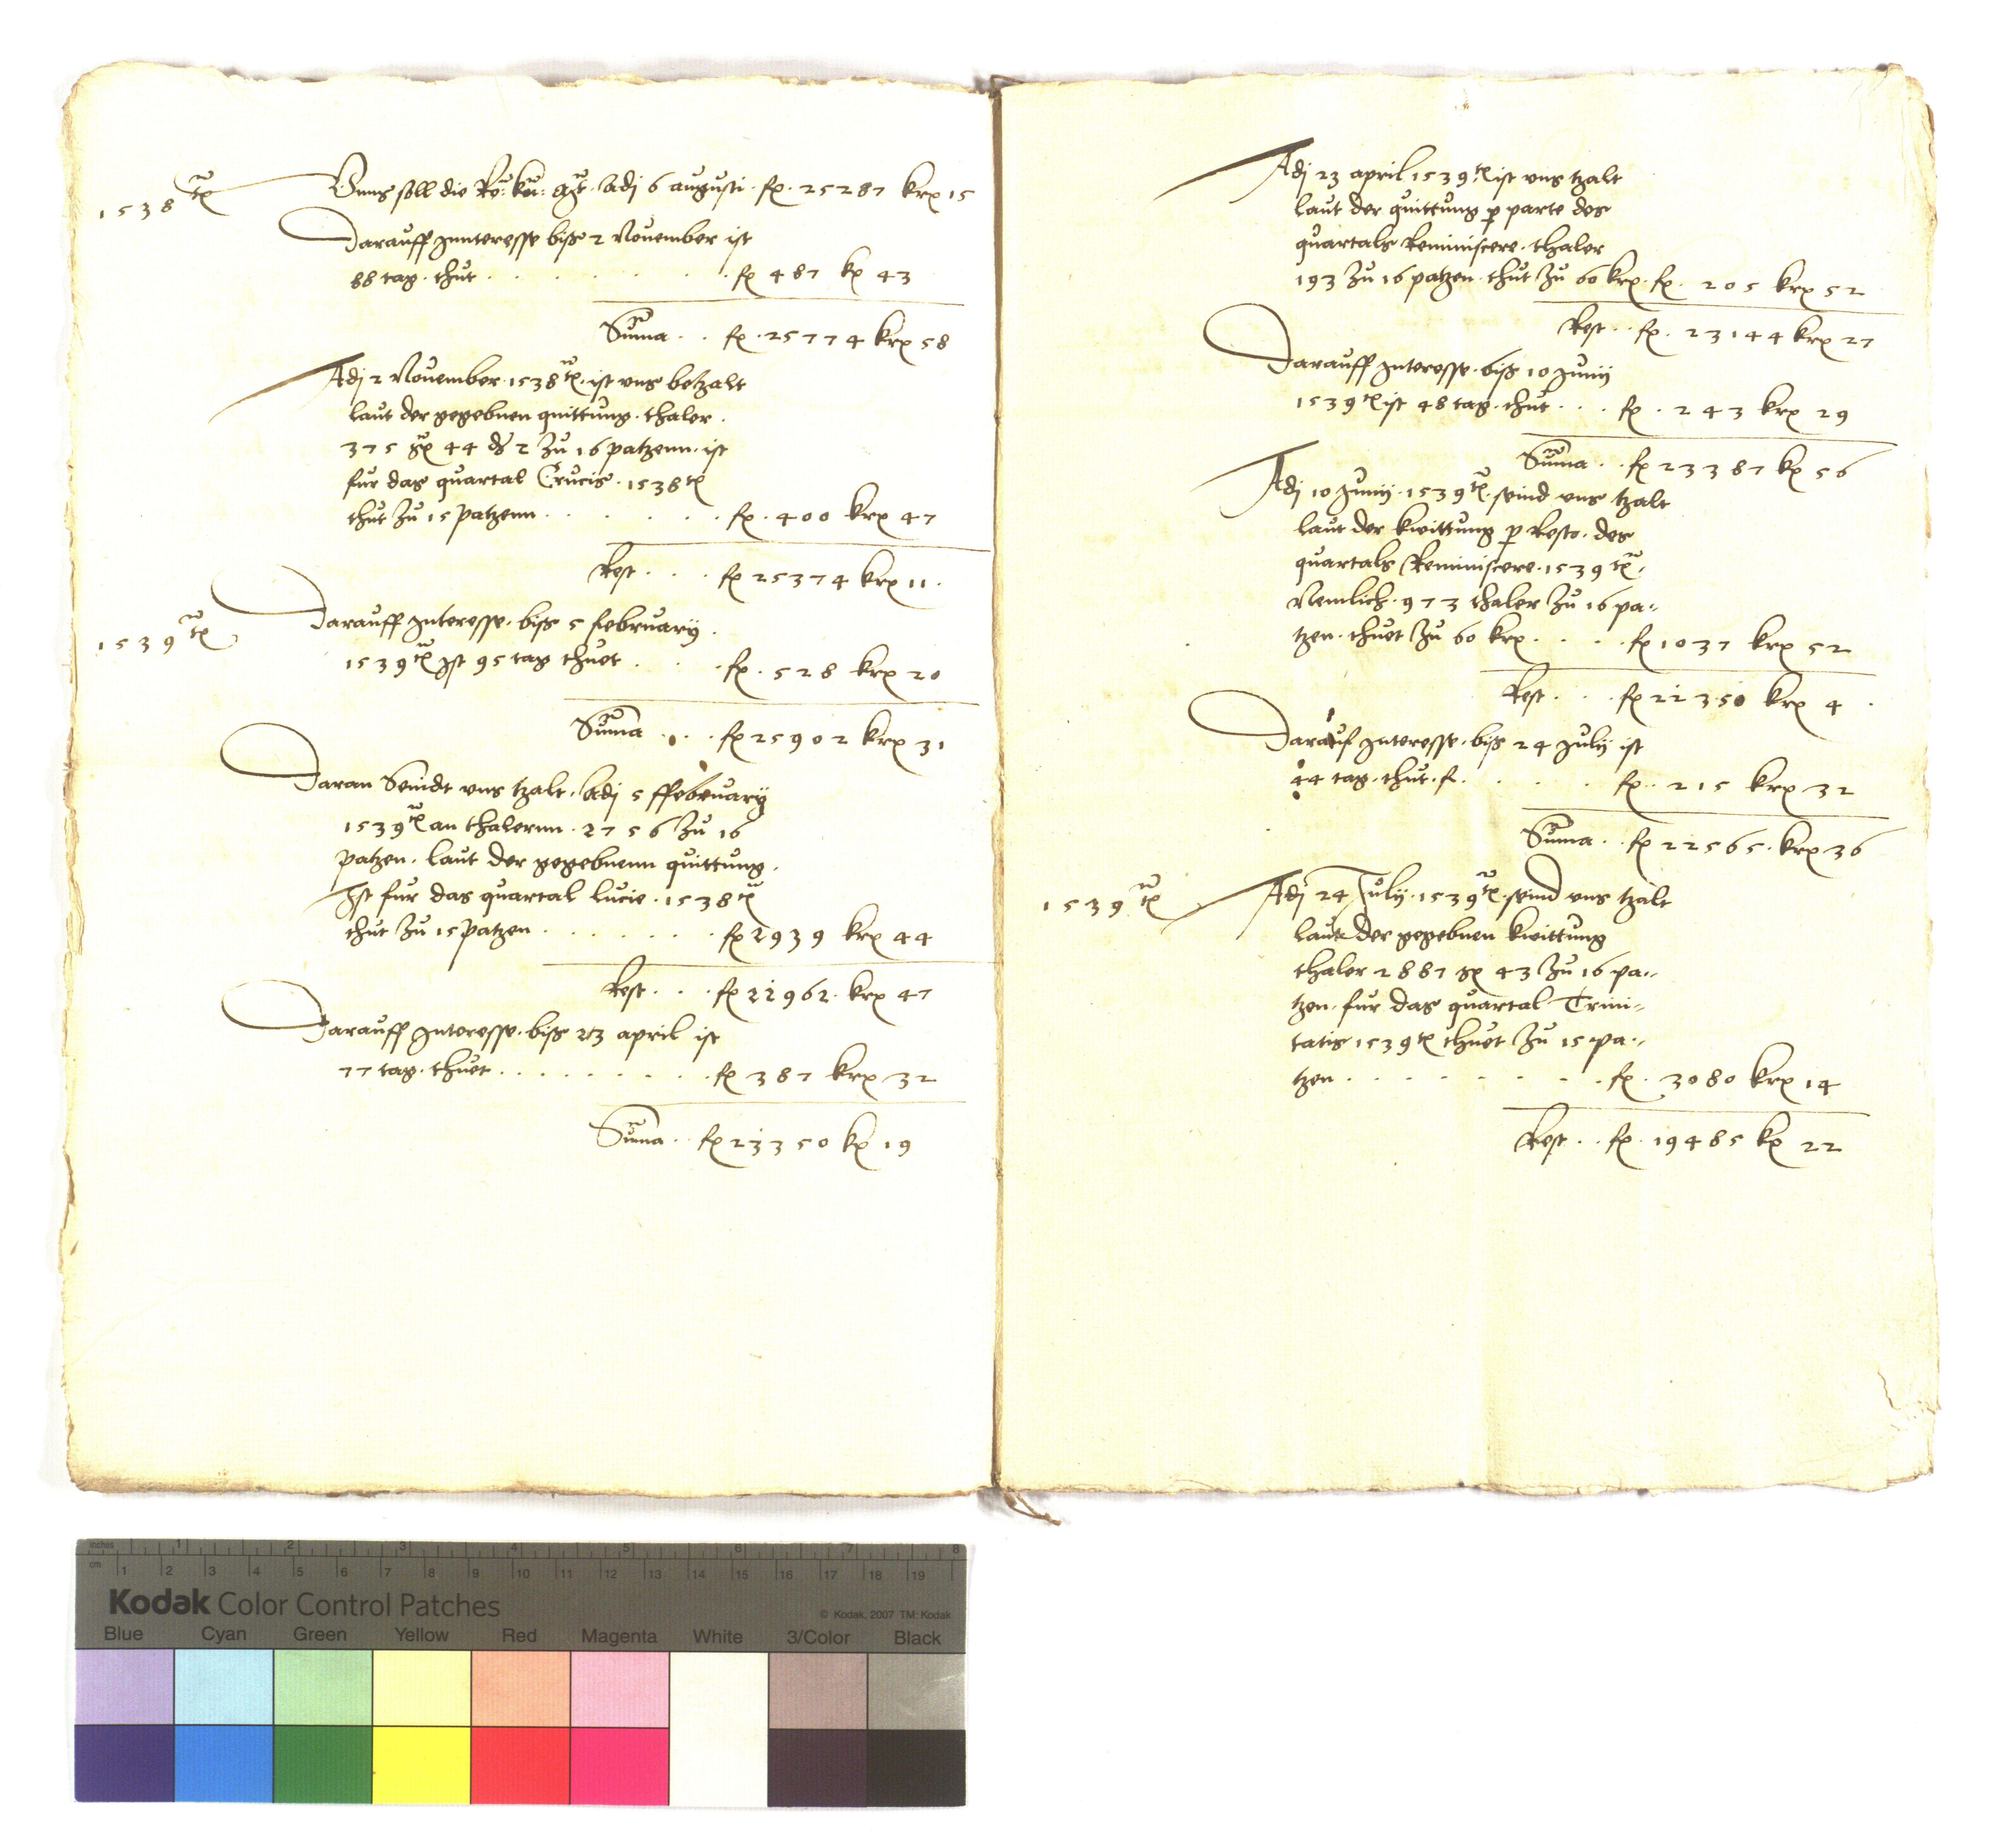 1538 te
Vnns soll die Ro: Ku: Mt. Adj 6 augusti. fl. 25287 krx 15
Darauff Innteresse biß 2 Nouember ist
88 tag. thut . . . . . . . . fl 487 kr 43
Suma . . fl. 25774 krx 58
Adj 2 Nouember. 1538 te. ist vns betzalt
laut der gegebnen quittung. thaler.
375 gr 44 d 2 Zu 16 patzenn. ist
fur das quartal Crucis. 1538 te
thut Zu 15 patzenn . . . . . . fl. 400 krx 47
Rest . . . fl 25374 krx 11.
1539 te
Darauff Interesse. biß 5 februarÿ.
1539 te Ist 95 tag thuet . . . fl. 528 krx 20
Suma . . . fl 25902 krx 31
Daran Seindt vns tzalt. Adj 5 ffebruarÿ
1539 te an thalernn. 2756 Zu 16
patzen. laut der gegebnenn quittung.
Ist fur das quartal lucie. 1538 te
thut Zu 15 patzen . . . . . . fl 2939 krx 44
Rest . . . fl 22962. krx 47
Darauff Interesse. biß 23 april ist
77 tag. thuet . . . . . . . . . fl 387 krx 32
Suma . . fl 23350 kr 19
Adj 23 april 1539 te ist vns tzalt
laut der quittung p parte des
quartals Reminiscere. thaler
193 Zu 16 patzen. thut Zu 60 krx. fl. 205 krx 52
Rest . . fl. 23144 krx 27
Darauff Interesse. biß 10 Junÿ
1539 te ist 48 tag. thut . . . fl. 243 krx 29
Suma . . fl 23387 kr 56
Adj 10 Junÿ. 1539 te. seind vns tzalt
laut der kwittung p Resto. des
quartals Reminiscere. 1539 te.
Nemlich. 973 thaler Zu 16 pa-
tzen. thuet Zu 60 krx . . . . fl 1037 krx 52
Rest . . . fl 22350 krx 4.
Darauf Interesse. biß 24 Julÿ ist
44 tag. thut. f . . . . . fl. 215 krx 32
Suma . . fl 22565. krx 36
1539 te
Adj 24 Julÿ. 1539 te. seind vns tzalt
laut der gegebnen kwittung
thaler 2887 gr 43 Zu 16 pa-
tzen. fur das quartal Trini-
tatis 1539 te thuet Zu 15 pa-
tzen . . . . . . . . fl. 3080 krx 14
Rest . . fl. 19485 kr 22
inches 1 2 3 4 5 6 7 8
cm 1 2 3 4 5 6 7 8 9 10 11 12 13 14 15 16 17 18 19
Kodak Color Control Patches
© Kodak, 2007 TM: Kodak
Blue Cyan Green Yellow Red Magenta White 3/Color Black